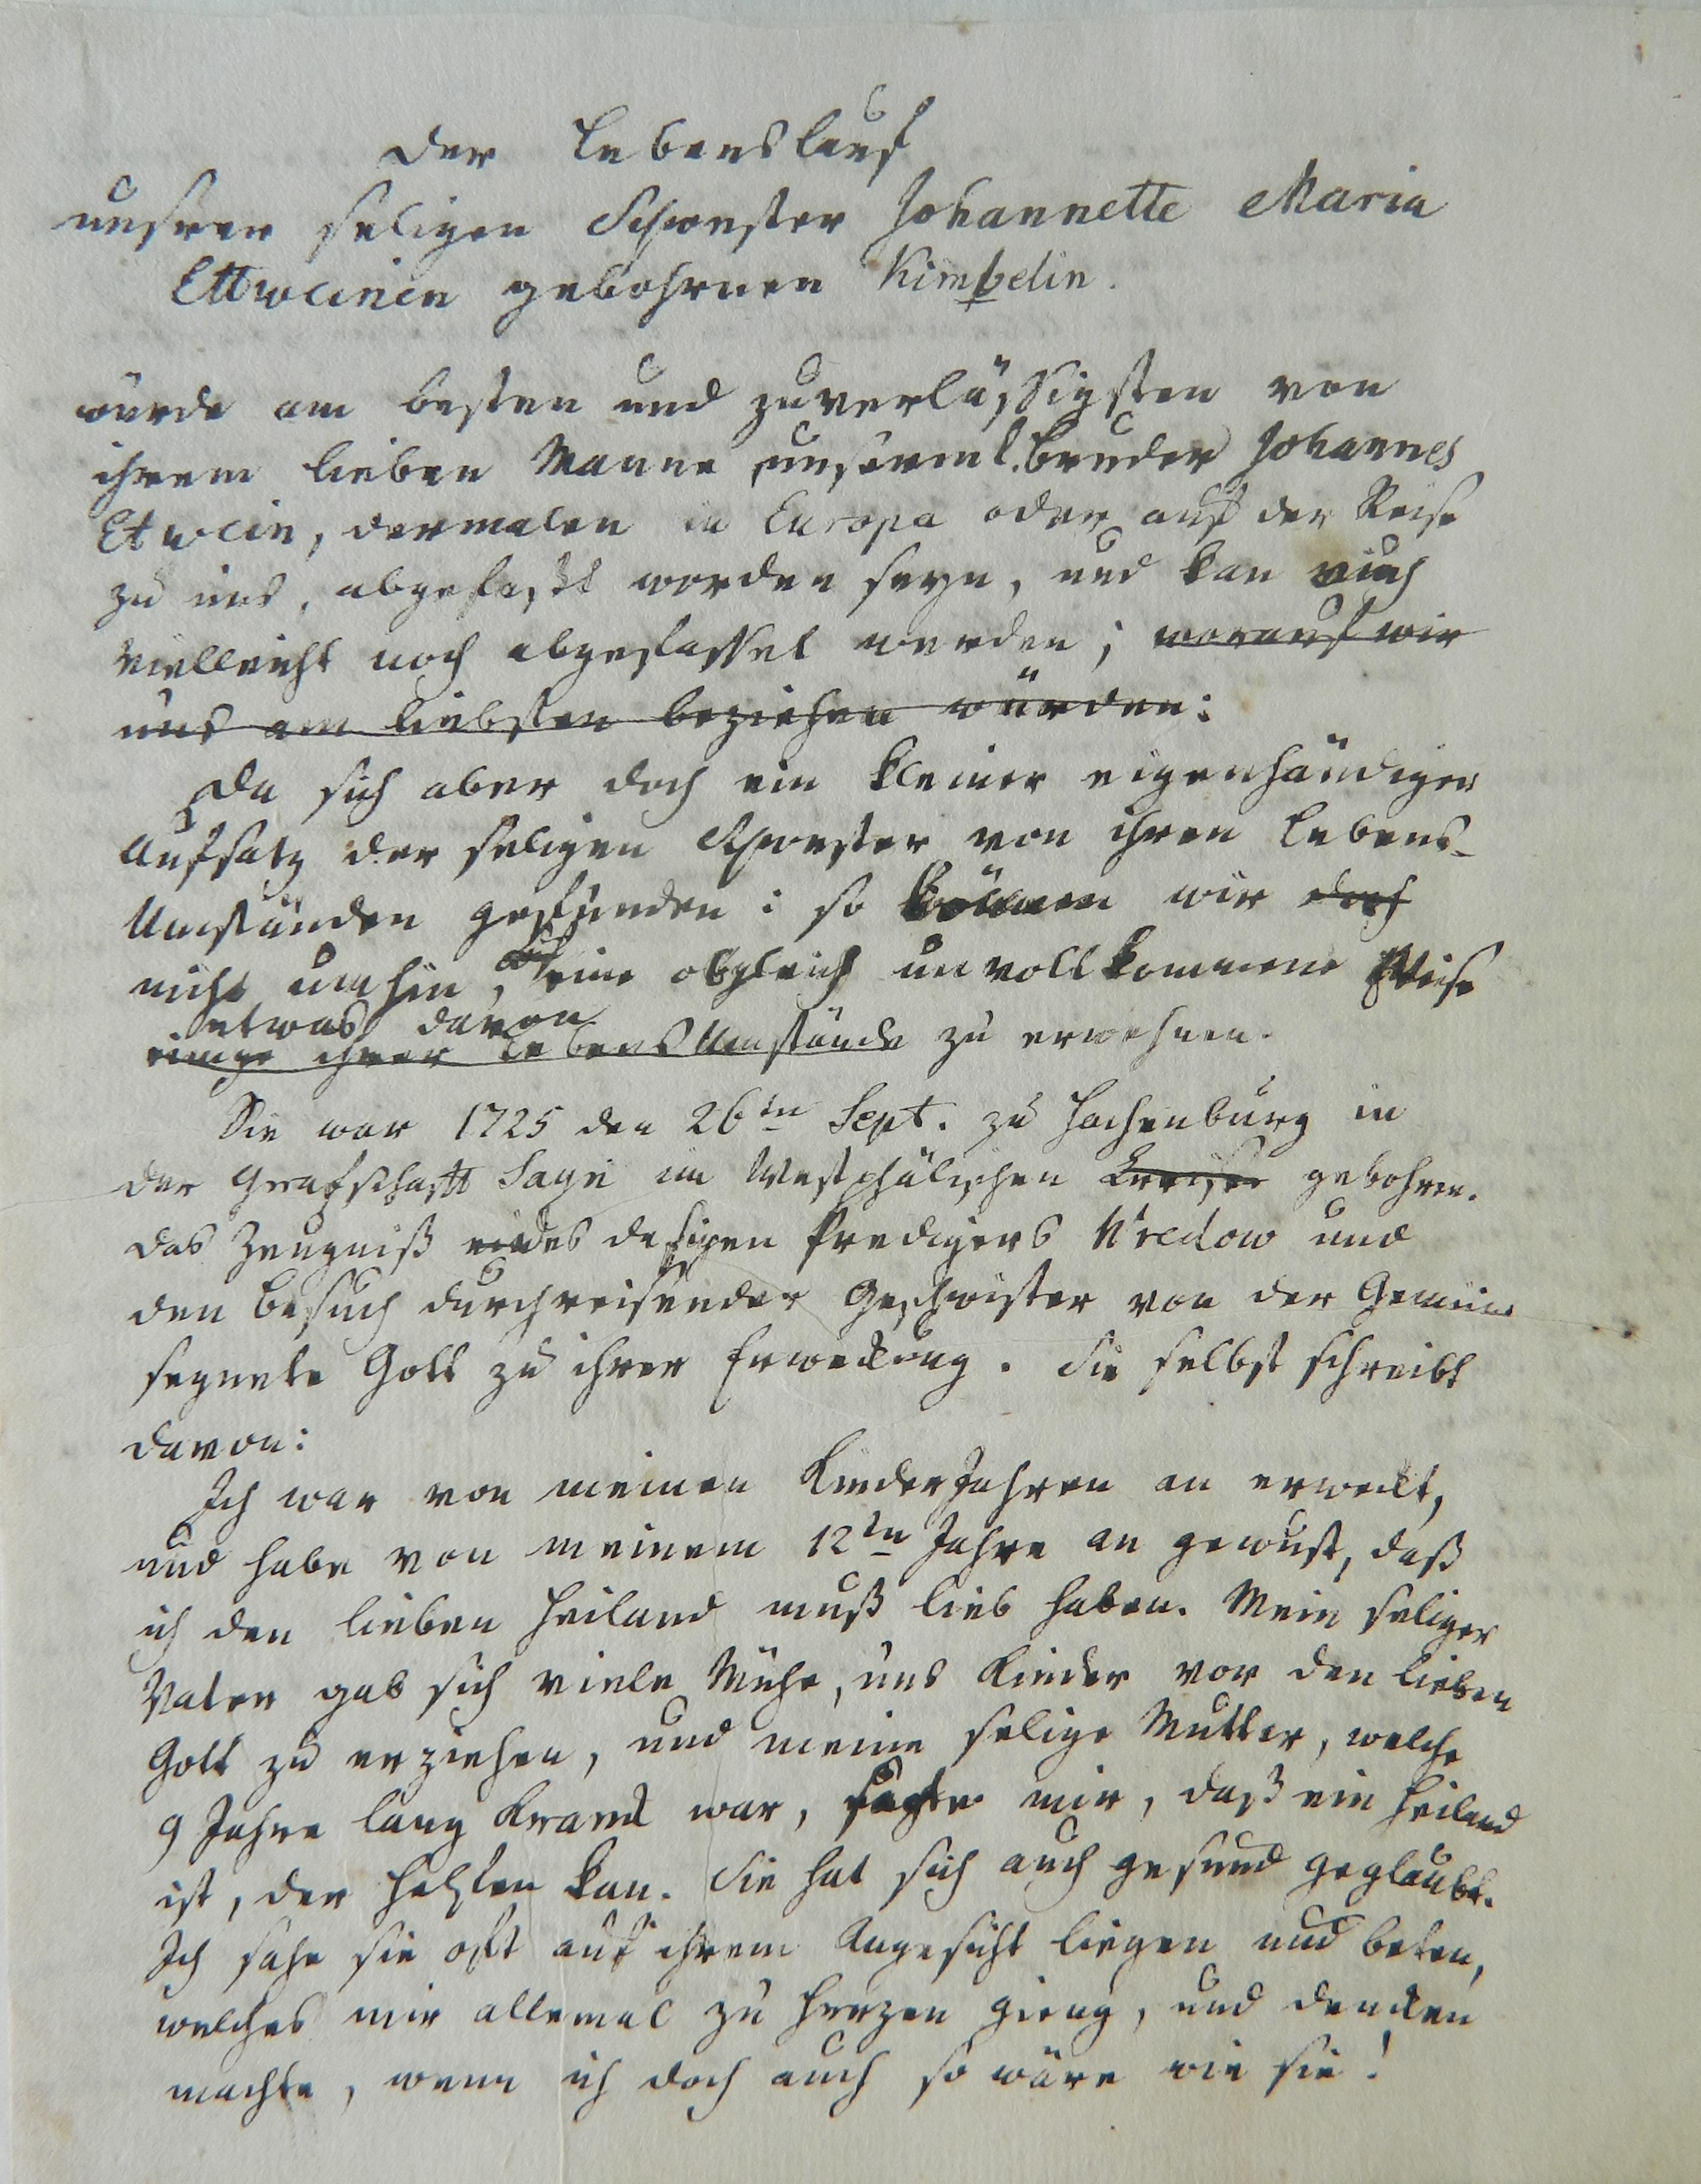 Der Lebenslauf
unsrer seligen Schwester Johannette Maria
Ettweinin gebohrnen Kimbelin.
würde am besten und zuverläßigsten von
ihrem lieben Manne unserm l. Bruder Johannes
Etwein, dermalen in Europa oder auf der Reise
zu uns, abgefaßt worden seyn, und kan auch
vielleicht noch abgefasset werden; worauf wir
uns am liebsten beziehen würden:
Da sich aber doch ein kleiner eigenhändiger
Aufsatz der seligen Schwester von ihren Lebens-
Umständen gefunden: so können wir doch
nicht umhin, auf eine obgleich unvollkommene Weise
etwas davon
einige ihrer LebensUmstände zu erwehnen.
Sie war 1725 den 26tn Sept. zu Hachenburg in
der Grafschafft Sayn im Westphälischen Kreise gebohren.
Das Zeugniß des dasigen Predigers und
den Besuch durchreisender Geschwister von der Gemeine
segnete Gott zu ihrer Erweckung. Sie selbst schreibt
davon:
Ich war von meinen KinderJahren an erweckt,
und habe von meinem 12tn Jahre an gewust, daß
ich den lieben Heiland muß lieb haben. Mein seliger
Vater gab sich viele Mühe, uns Kinder vor den lieben
Gott zu erziehen, und meine selige Mutter, welche
9 Jahre lang kranck war, sagte mir, daß ein Heiland
ist, der helffen kan. Sie hat sich auch gesund geglaubt.
Ich sahe sie offt auf ihrem Angesicht liegen und beten,
welches mir allemal zu Herzen gieng, und dencken
machte, wenn ich doch auch so wäre wie sie!